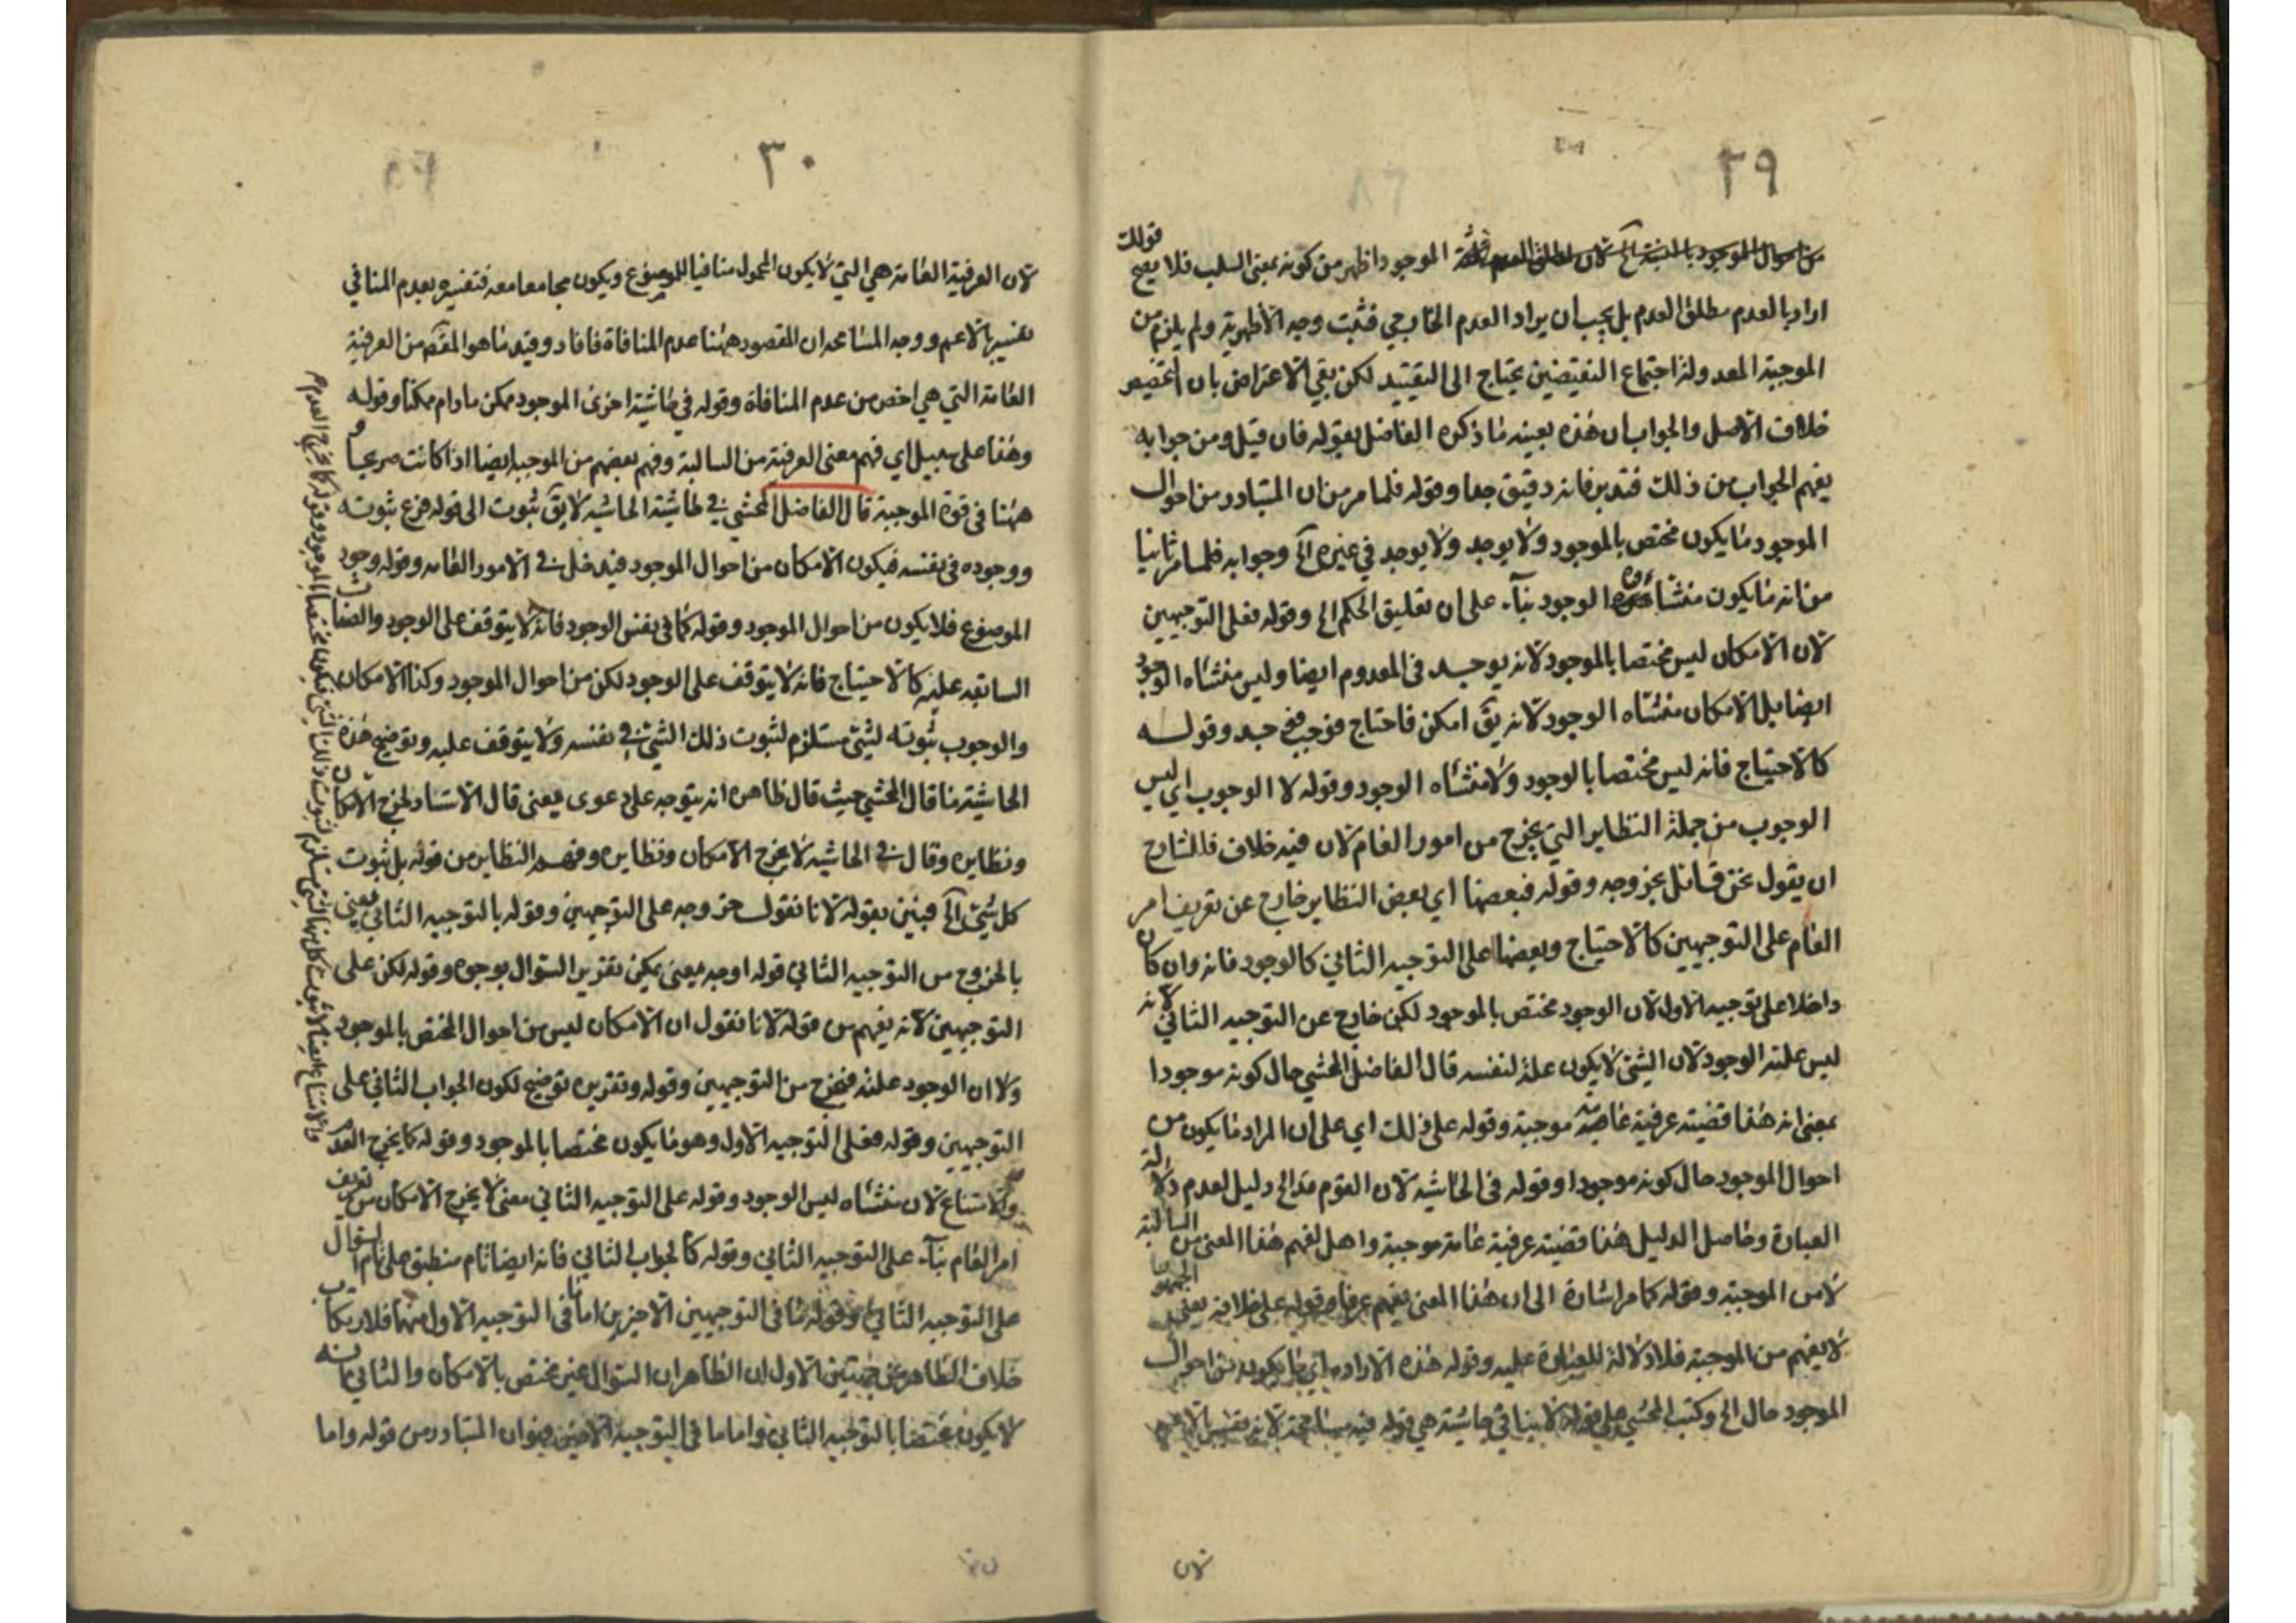 ٢٩
الموجود اظهر من كونه بمعنى السلب فلا يصح قولك
اراد بالعدم مطلق العدم بل يجب ان يراد العدم الخارجي فثبت وجه الأظهرية ولم يلزم من
الموجبة المعدولة اجتماع النقيضين يحتاج الى التقييد لكن بقي الاعتراض بان
خلاف الاصل والجواب ان هذه بعينه ما ذكره الفاضل بقوله فان قيل ومن جوابه
يفهم الجواب من ذلك فتدبر فانه دقيق جدا وقوله فلما مر من ان المتبادر من احوال
الموجود ما يكون مختص بالموجود ولا يوجد ولا يوجد في غيره آه وجوابه فلما مر ثانيا
من انه ما يكون منشاؤه الوجود بناء على ان تعليق الحكم الخ وقوله فعلى التوجيهين
لان الامكان ليس مختصا بالموجود لانه يوجد في المعدوم ايضا وليس منشاه الوجود
ايضا بل الامكان منشاه الوجود لانه يق امكن فاحتاج فوجب فوجد وقوله
كالاحتياج فانه ليس مختصا بالوجود ولا منشاه الوجود وقوله لا الوجوب اي ليس
الوجوب من جملة النظاير التي يخرج من امور العام لان فيه خلاف فللشارح
ان يقول نحن قائل بخروجه وقوله فبعضها اي بعض النظاير خارج عن تعريف امر
العام على التوجيهين كالاحتياج وبعضها على التوجيه الثاني كالوجود فانه وان كان
داخلا على توجيه الاول لان الوجود مختص بالموجود لكن خارج عن التوجيه الثاني لانه
ليس علته الوجود لان الشئ لا يكون علة لنفسه قال الفاضل المحشي حال كونه موجودا
بمعنى انه هذا قضيته عرفية موجبة وقوله على ذلك اي على ان المراد ما يكون من
احوال الموجود حال كونه موجودا وقوله في الحاشيه لان القوم الخ دليل لعدم دلالة
العبارة وحاصل الدليل هذا قضيته عرفية عامة موجبة واهل لفهم هذا المعنى من السالبة
لا من الموجبة وقوله كما مر اشارة الى ان هذا المعنى يفهم عرفا وقوله على خلافه يعني
لا يفهم من الموجبة فلا دلالة للعبارة عليه وقوله هذه الارادة اي ما يكون من احوال
الموجود حال الخ وكتب المحشي على قوله لا ينافي حاشيته هي قوله فيه مسامحة لانه تفسير
لان
٣٠
لان العرفية العامة هي التي لا يكون المحمول منافيا للموضوع ويكون مجامعا معه فتفسيره بعدم المنافي
تفسير بالاعم ووجه المسامحة ان المقصود ههنا عدم المنافاة فافاد وقيد ما هو المقصم من العرفية
العامة التي هي اخص من عدم المنافاة وقوله في حاشية اخرى الموجود ممكن مادام ممكنا وقوله
وهذا على سبيل اي فهم معنى العرفية من السالبة وفهم بعضهم من الموجبة ايضا اذا كانت صريحا و
ههنا في قوة الموجبة قال الفاضل المحشي في حاشية الحاشيه لا يق ثبوت الى قوله فرع ثبوته
ووجوده في نفسه فيكون الامكان من احوال الموجود فيدخل في الامور العامه وقوله وجود
الموضوع فلا يكون من احوال الموجود وقوله كما في نفس الوجود فانه لا يتوقف على الوجود والصفات
السابقه عليه كالاحتياج فانه لا يتوقف على الوجود لكن من احوال الموجود وكذا الامكان
والوجوب ثبوته لشئ مستلزم لثبوت ذلك الشئ في نفسه ولا يتوقف عليه وتوضيح هذه
الحاشية ما قال المحشي حيث قال ظاهره انه يتوجه على دعوى يعني قال الاستاد لخرج الامكان
ونظايره وقال في الحاشيه لا يخرج الامكان ونظايره وفهم النظاير من قوله بل ثبوت
كل شئ آه فبين بقوله لانا نقول خروجه على التوجيهين وقوله بالتوجيه الثاني يعني
بالخروج من التوجيه الثاني قوله اوجه يعني يمكن تقرير السؤال بوجوه وقوله لكن على
التوجيهين لانه يفهم من قوله لانا نقول ان الامكان ليس من احوال المختص بالموجود
ولا ان الوجود علته فيخرج من التوجيهين وقوله وتقريره توضيح لكون الجواب الثاني على
التوجيهين وقوله فعلى التوجيه الاول وهو ما يكون مختصا بالموجود وقوله كما يخرج العدم
والامتناع لان منشاه ليس الوجود وقوله على التوجيه الثاني معنى لا يخرج الامكان من تعريف
امر العام بناء على التوجيه الثاني وقوله كالجواب الثاني فانه ايضا تام منطبق على تمام السؤال
على التوجيه الثاني وقوله ما في التوجيهين الاخيرين اما في التوجيه الاول منهما فلارتكاب
خلاف الظاهر من جهتين الاول ان الظاهر ان السؤال غير مختص بالامكان والثاني فانه
لا يكون مختصا بالتوجيه الثاني واما ما في التوجيه الاخير فهو ان المتبادر من قوله واما